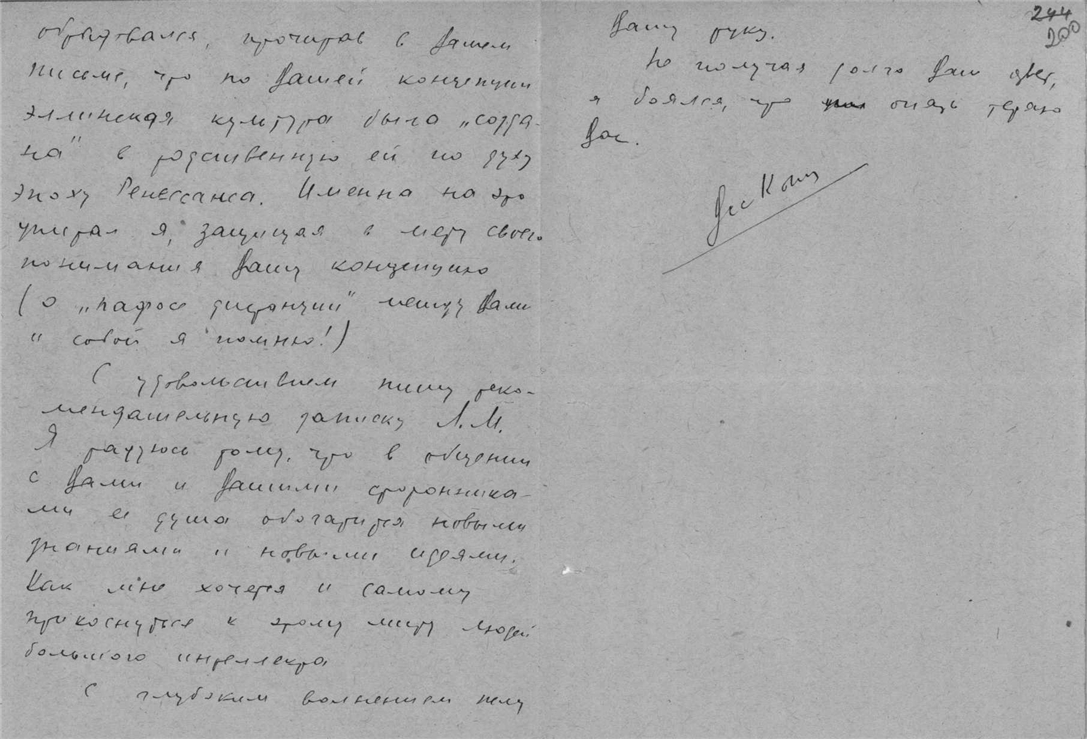 обрадовался, прочитав в Вашем
письме, что по Вашей концепции
эллинская культура была „созда-
на" в родственную ей по духу
эпоху Ренессанса. Именна на это
упирал я, защищая в меру своего
понимания Вашу концепцию
(о „пафосе дистанции" между Вами
и собой я помню!)
С удовольствием пишу реко-
мендательную записку Л.М.
Я радуюсь тому, что в общении
с Вами и Вашими сторонника-
ми её душа обогатится новыми
знаниями и новыми идеями.
Как мне хочется и самому
прикоснуться к этому миру людей
большого интеллекта
С глубоким волнением жму
244
200
Вашу руку.
Не получая долго Ваш ответ,
я боялся, что опять теряю
Вас.